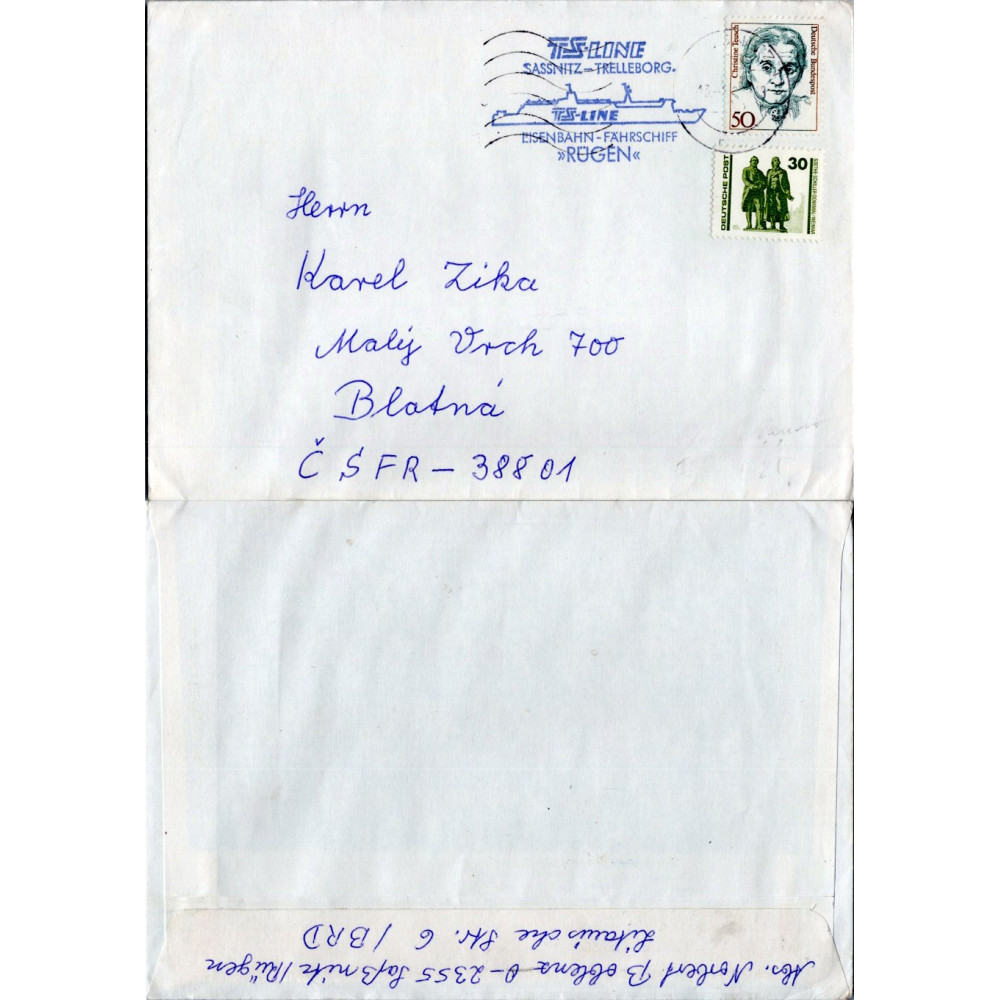 TS-LINE
SASSNITZ–TRELLEBORG.
TS-LINE
EISENBAHN-FÄHRSCHIFF
»RÜGEN«
Christine Teusch
Deutsche Bundespost
50
DEUTSCHE POST
30
Herrn
Karel Zika
Malý Vrch 700
Blatná
ČSFR – 38801
Abs. Norbert O-2355 Saßnitz/Rügen
Litauische Str. 6 / BRD